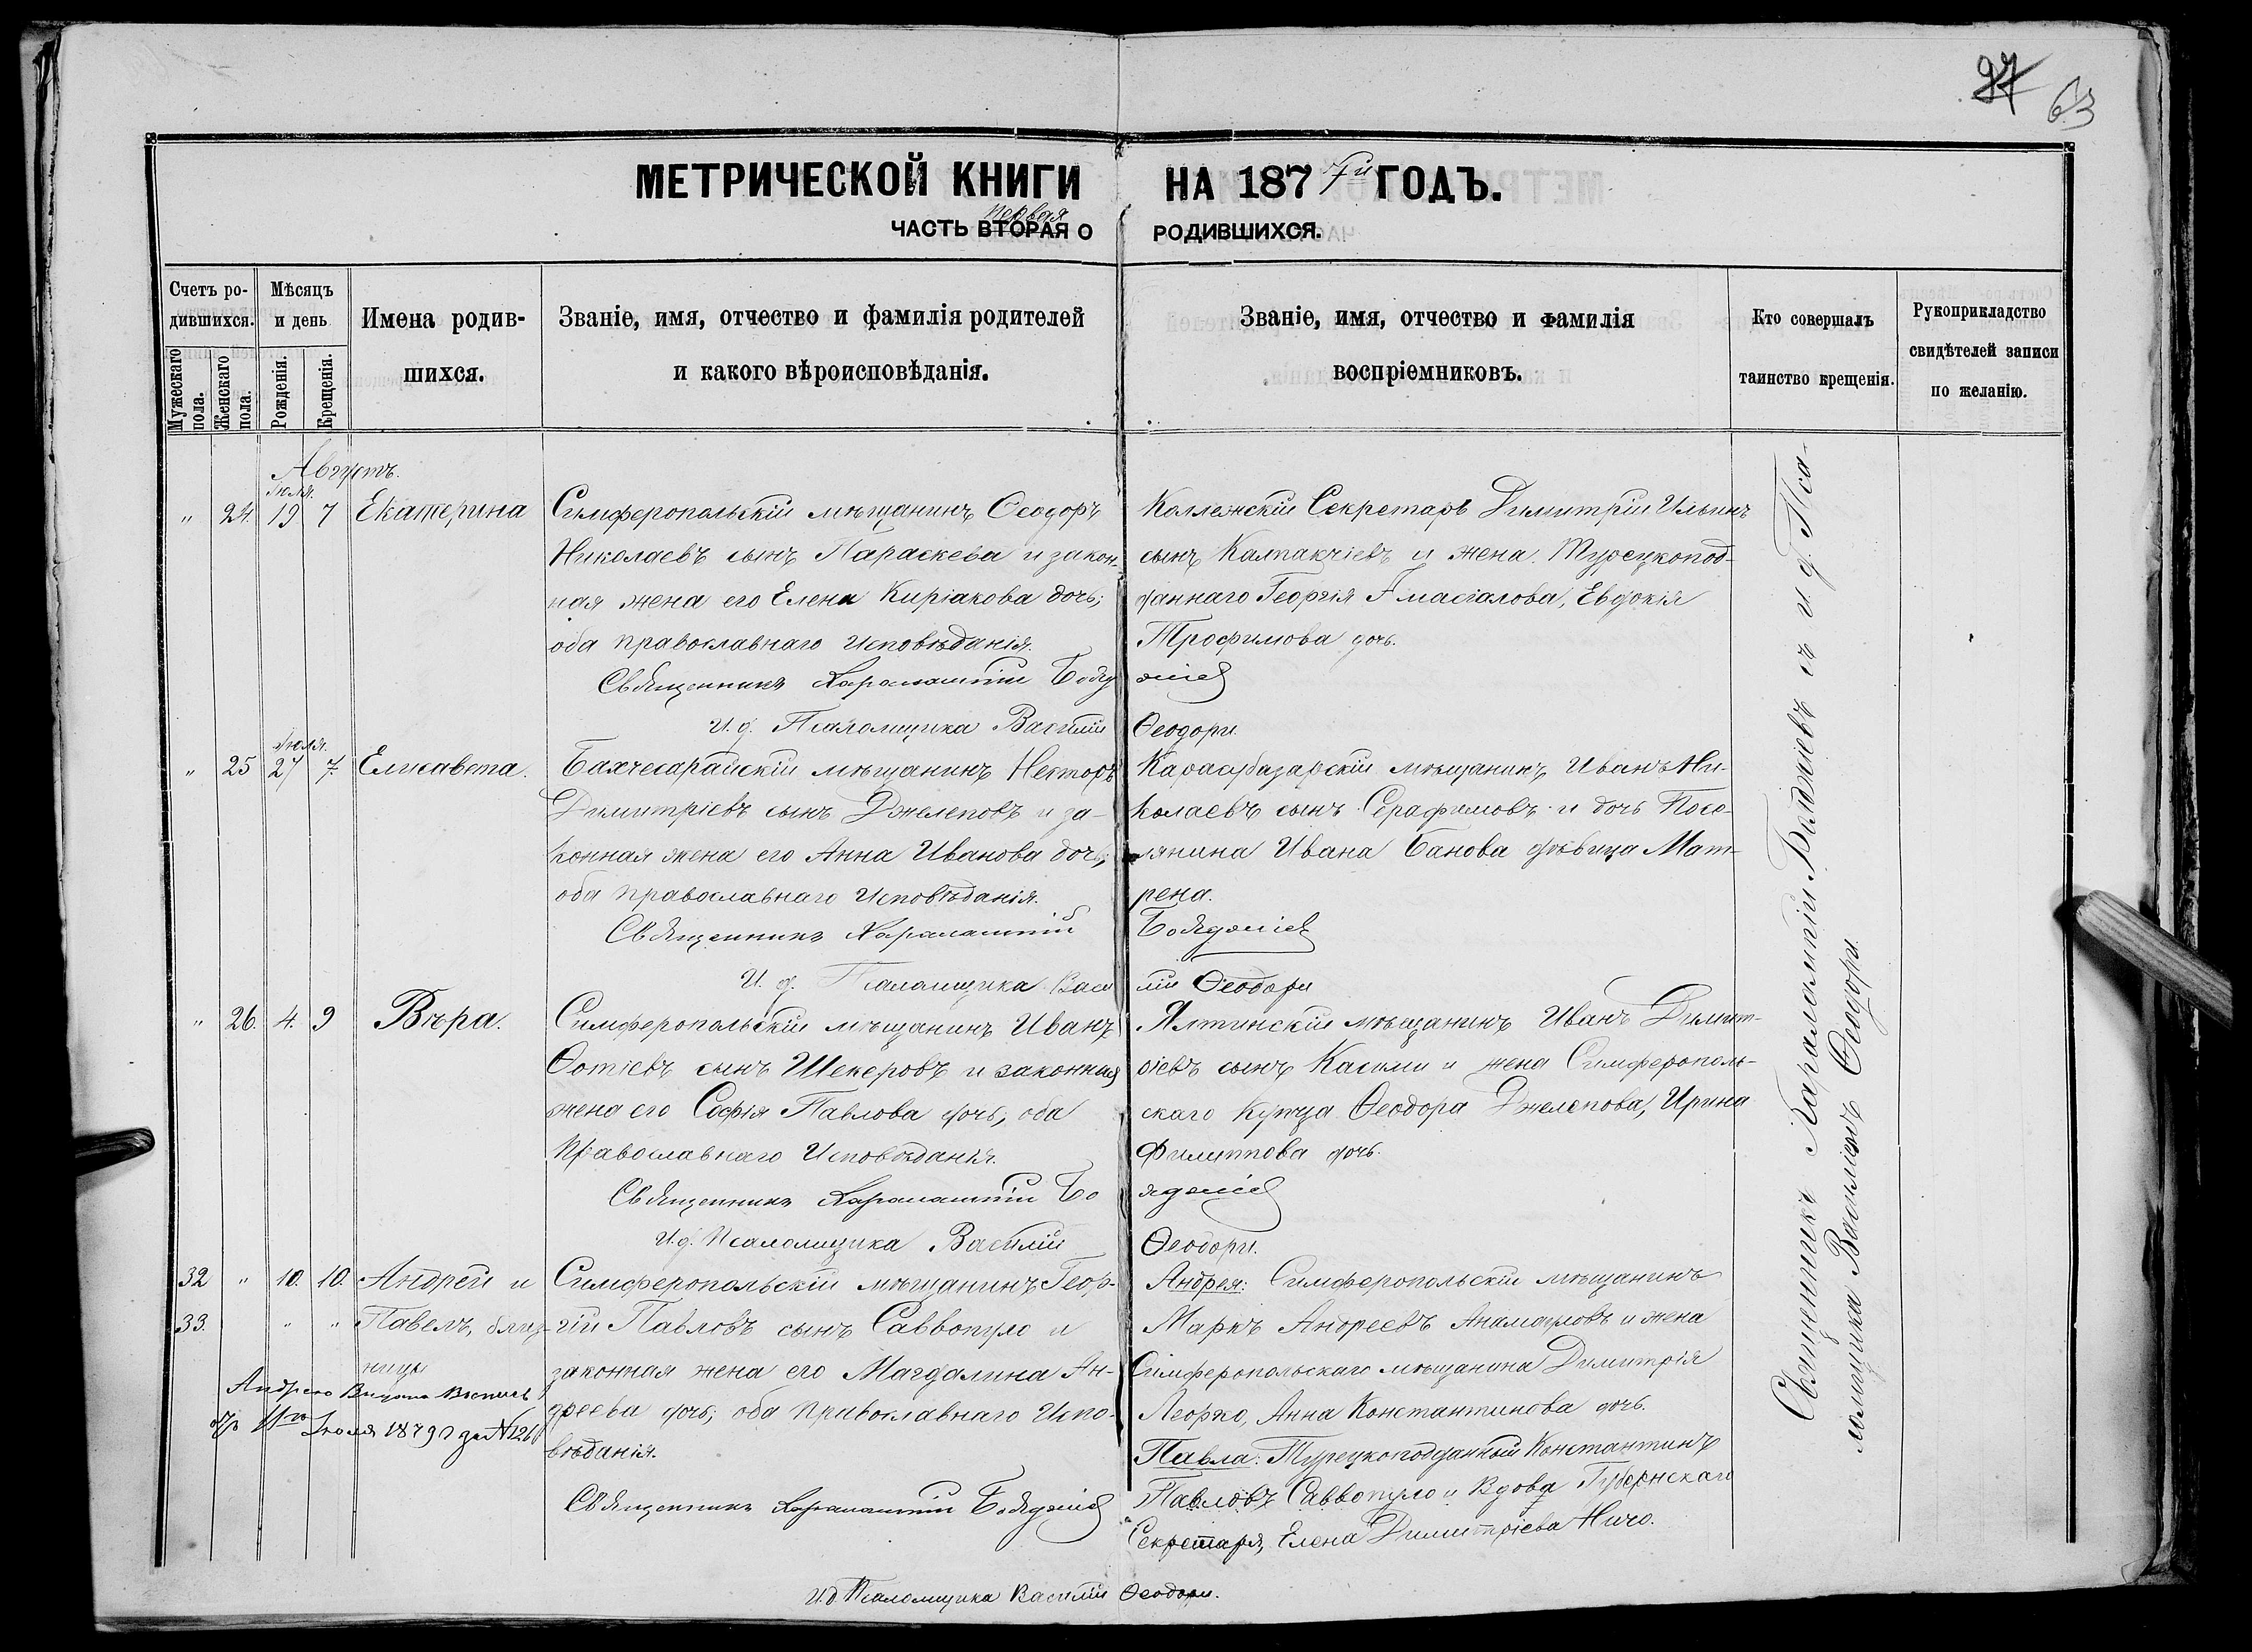 97 63
МЕТРИЧЕСКОЙ КНИГИ НА 1877й ГОДЪ.
первая
ЧАСТЬ ВТОРАЯ О РОДИВШИХСЯ.
Счетъ ро-
дившихся.
Мужескаго пола.
Женскаго пола.
Мѣсяцъ
и день
Рожденія.
Крещенія.
Имена родив-
шихся.
Званіе, имя, отчество и фамилія родителей
и какого вѣроисповѣданія.
Званіе, имя, отчество и фамилія
воспріемниковъ.
Кто совершалъ
таинство крещенія.
Рукоприкладство
свидѣтелей записи
по желанію.
Августъ.
Іюля.
" 24. 19 7 Екатерина
Симферопольскій мѣщанинъ Ѳеодоръ
Николаевъ сынъ Параскева и закон-
ная жена его Елена Киріакова дочь;
оба православнаго исповѣданія.
Священникъ Харалампій
И. д. Псаломщика Василій Ѳеодори.
Коллежскій Секретарь Димитрій Ильинъ
сынъ Калпакчіевъ и жена Турецкопод-
даннаго Георгія Евдокія
Трофимова дочь.
Іюля.
" 25 27 7. Елисавета.
Бахчесарайскій мѣщанинъ Несторъ
Димитріевъ сынъ Джелеповъ и за-
конная жена его Анна Иванова дочь;
оба православнаго Исповѣданія.
Священникъ Харалампій
И. д. Псаломщика Василій Ѳеодори
Карасубазарскій мѣщанинъ Иванъ Ни-
колаевъ сынъ Серафимовъ и дочь Посе-
лянина Ивана Банова дѣвица Мат-
рена.
" 26. 4. 9 Вѣра.
Симферопольскій мѣщанинъ Иванъ
Ѳотіевъ сынъ Шекеровъ и законная
жена его Софія Павлова дочь, оба
Православнаго Исповѣданія.
Священникъ Харалампій
И. д. Псаломщика Василій Ѳеодори.
Ялтинскій мѣщанинъ Иванъ Димит-
ріевъ сынъ Касими и жена Симферополь-
скаго Купца Ѳеодора Джелепова, Ирина
Филиппова дочь.
32 " 10. 10. Андрей и
33. " " Павелъ, близ-
ницы
Андрею Выдана Выпись
11го Іюля 1879 г за №126
Симферопольскій мѣщанинъ Геор-
гій Павловъ сынъ Саввопуло и
законная жена его Магдалина Ан-
дреева дочь; оба православнаго Испо-
вѣданія.
Священникъ Харалампій
Андрея: Симферопольскій мѣщанинъ
Маркъ Андреевъ и жена
Симферопольскаго мѣщанина Димитрія
Леорко, Анна Константинова дочь.
Павла: Турецкоподданный Константинъ
Павловъ Саввопуло и Вдова Губернскаго
Секретаря, Елена Димитріева Ничо.
И. д. Псаломщика Василій Ѳеодори.
Священникъ Харалампій съ и. д. Пса-
ломщика Василіемъ Ѳеодори.